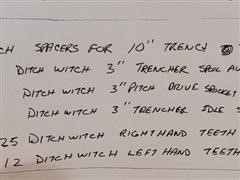 CH SPACERS FOR 10" TRENCH
DITCH WITCH 3" TRENCHER SPOIL AU
DITCH WITCH 3" PITCH DRIVE SPOCKET
DITCH WITCH 3" TRENCHER IDLE S
25 DITCH WITCH RIGHT HAND TEETH
12 DITCH WITCH LEFT HAND TEETH